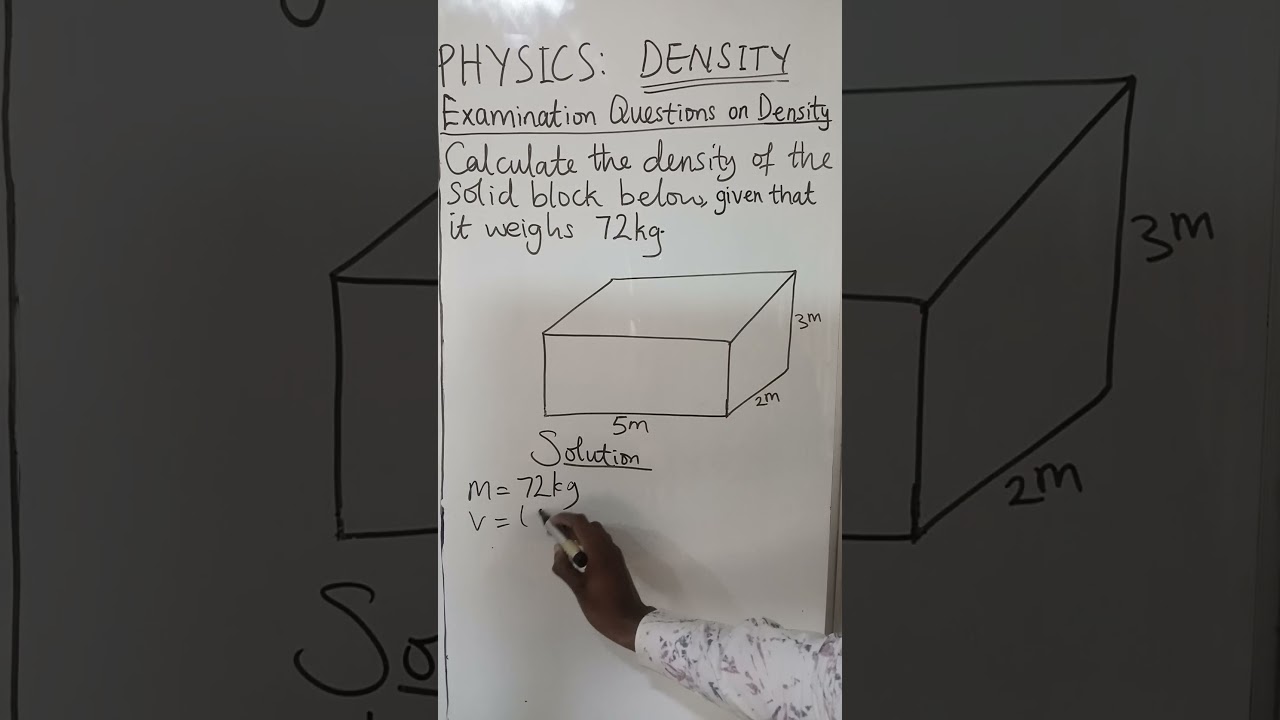 PHYSICS: DENSITY
Examination Questions on Density
Calculate the density of the
solid block below, given that
it weighs 72kg.
3m
2m
5m
Solution
m = 72kg
v = (
3m
2m
So